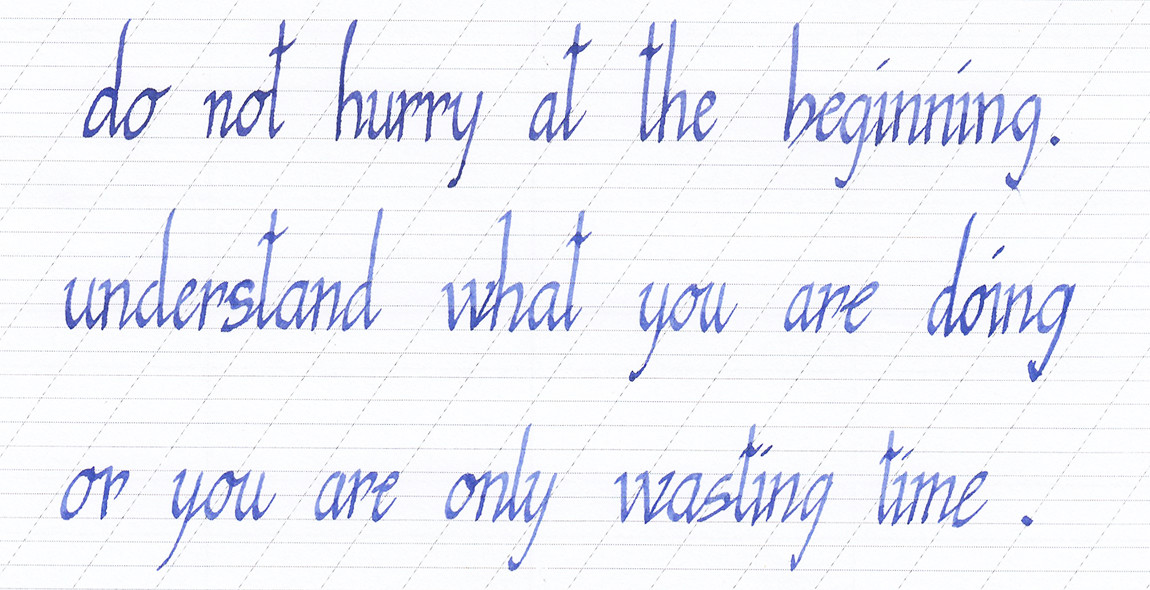 do not hurry at the beginning.
understand what you are doing
or you are only wasting time .